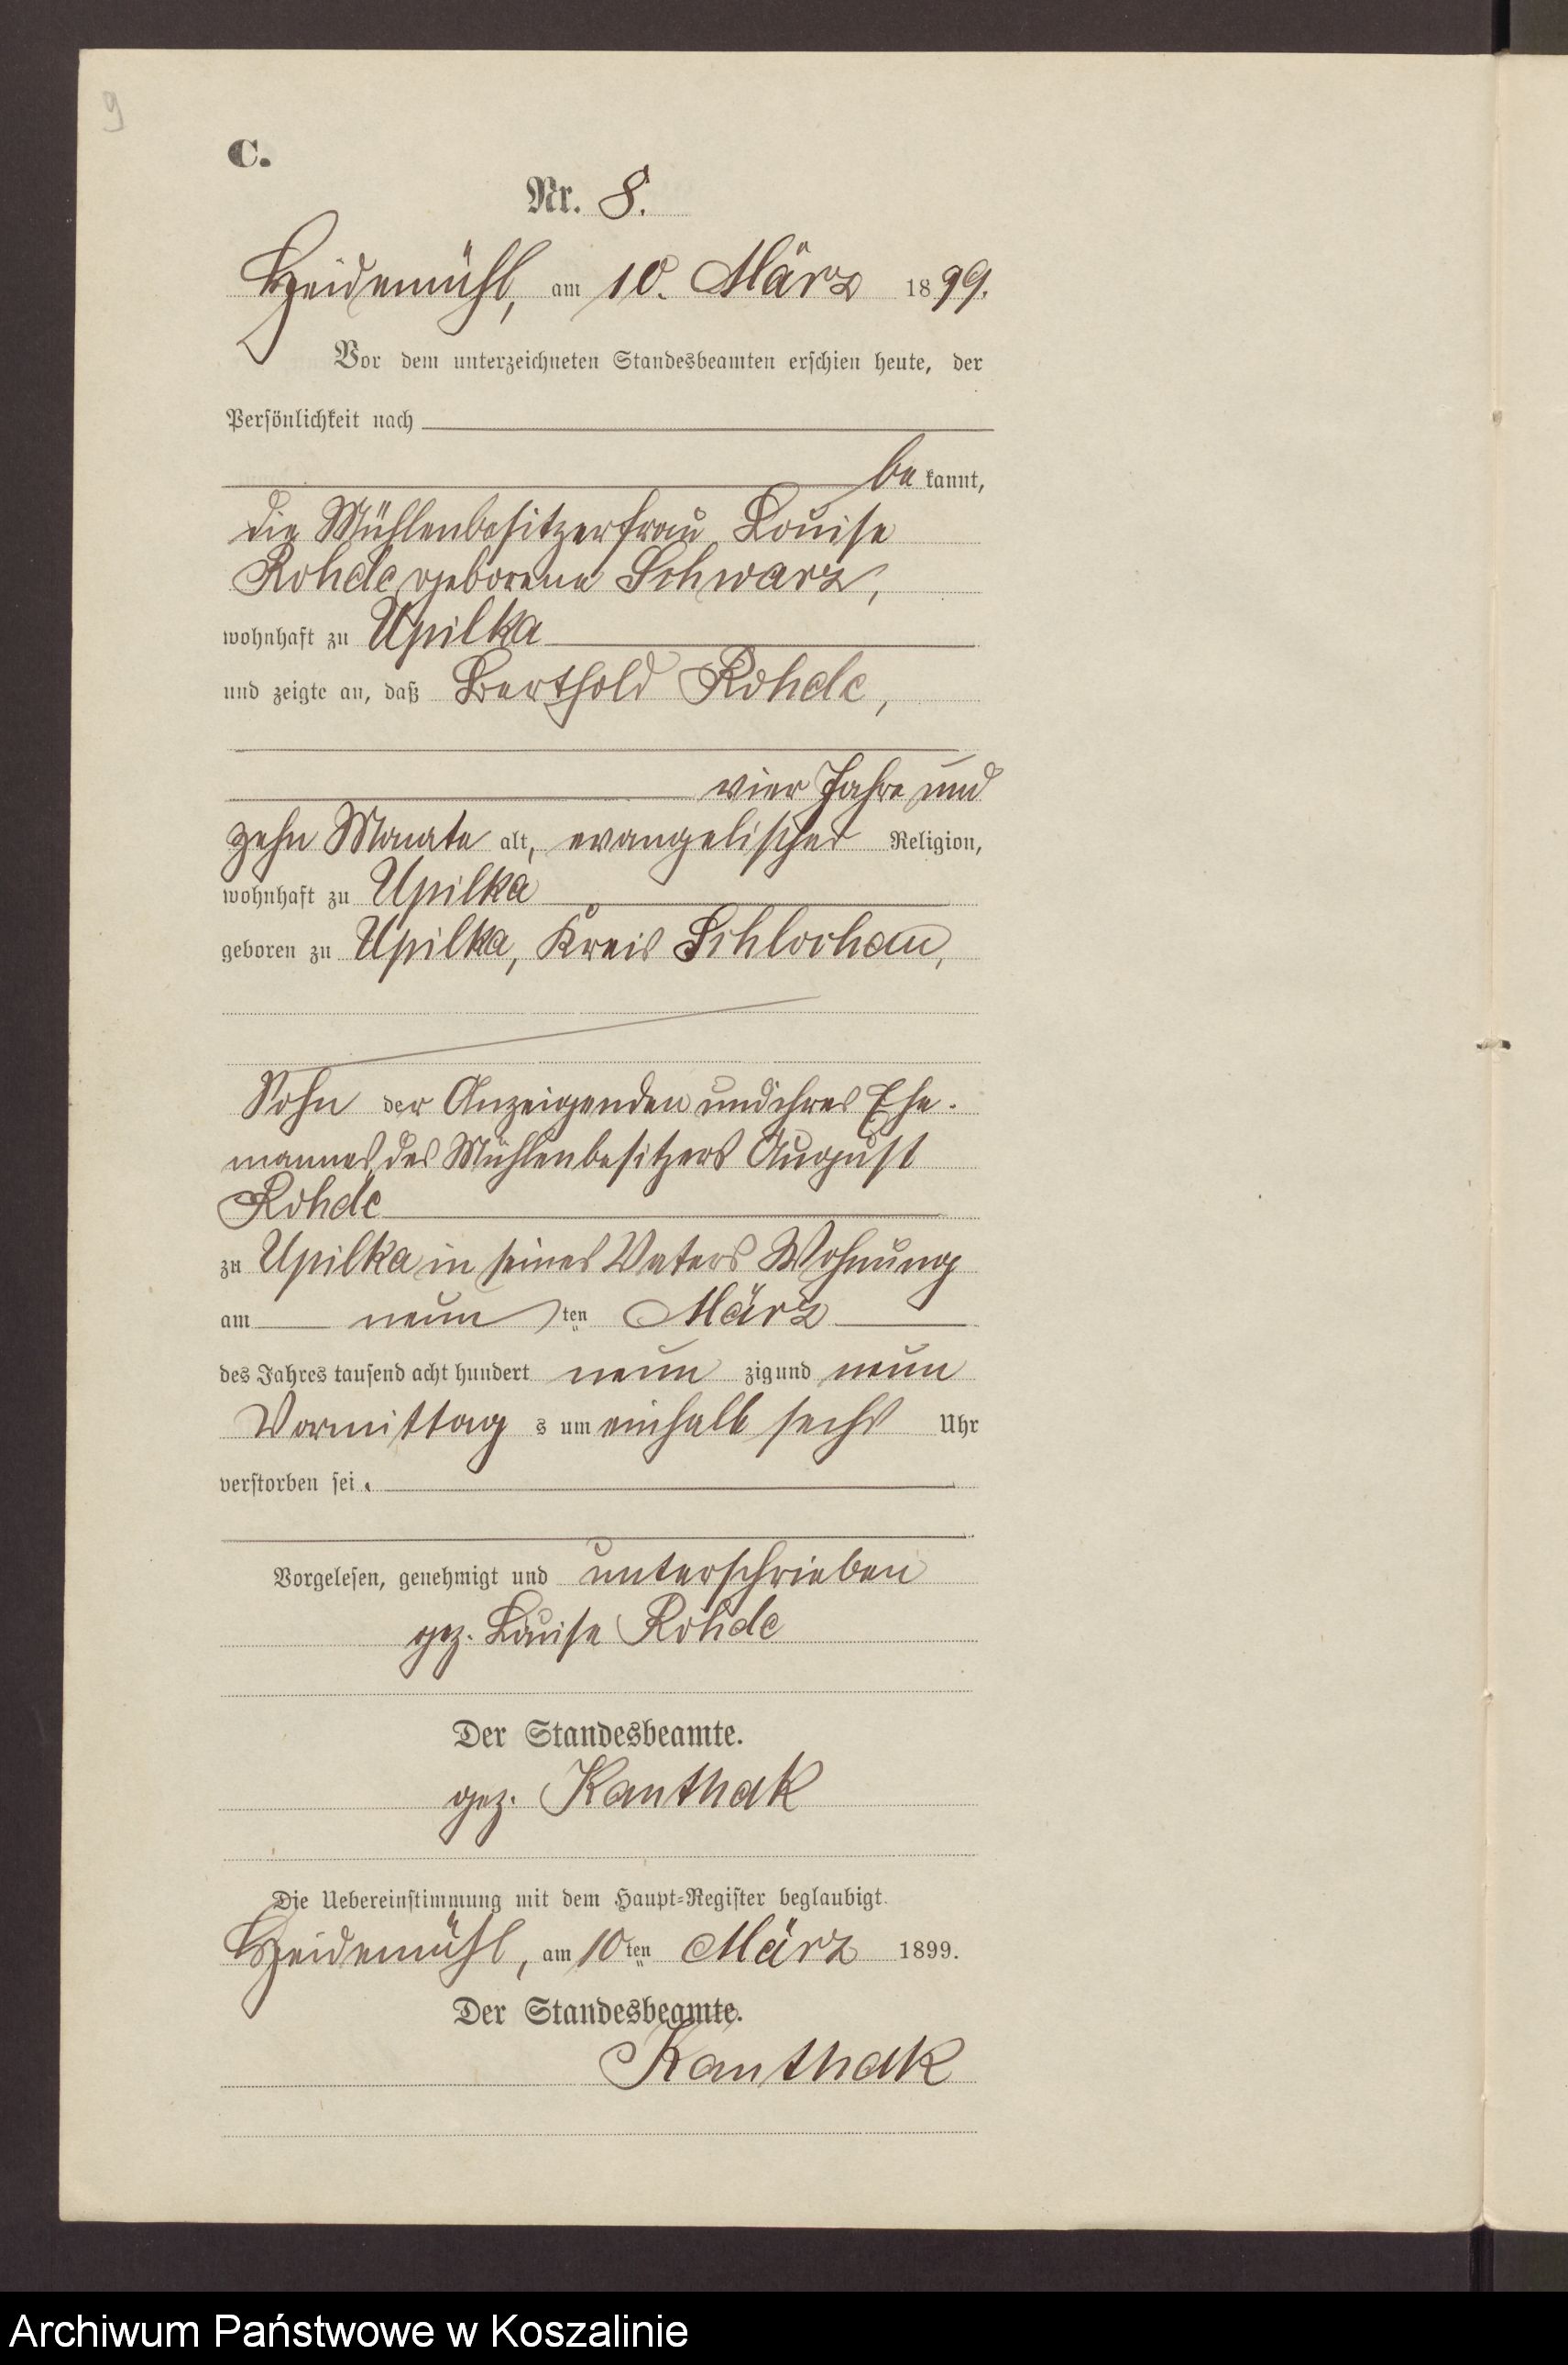 9
C.
Nr. 8.
Heidemühl, am 10. März 1899.
Vor dem unterzeichneten Standesbeamten erschien heute, der
Persönlichkeit nach
bekannt,
die Mühlenbesitzerfrau Louise
Rohde geborene Schwarz,
wohnhaft zu Upilka
und zeigte an, daß Berthold Rohde,
vier Jahre und
zehn Monate alt, evangelischer Religion,
wohnhaft zu Upilka
geboren zu Upilka, Kreis Schlochau,
Sohn der Anzeigenden und ihres Ehe-
mannes, des Mühlenbesitzers August
Rohde
zu Upilka in seines Vaters Wohnung
am neunten März
des Jahres tausend acht hundert neunzig und neun
Vormittags um einhalb sechs Uhr
verstorben sei.
Vorgelesen, genehmigt und unterschrieben
gez. Louise Rohde
Der Standesbeamte.
gez. Kanthak
Die Uebereinstimmung mit dem Haupt-Register beglaubigt.
Heidemühl, am 10ten März 1899.
Der Standesbeamte.
Kanthak
Archiwum Państwowe w Koszalinie